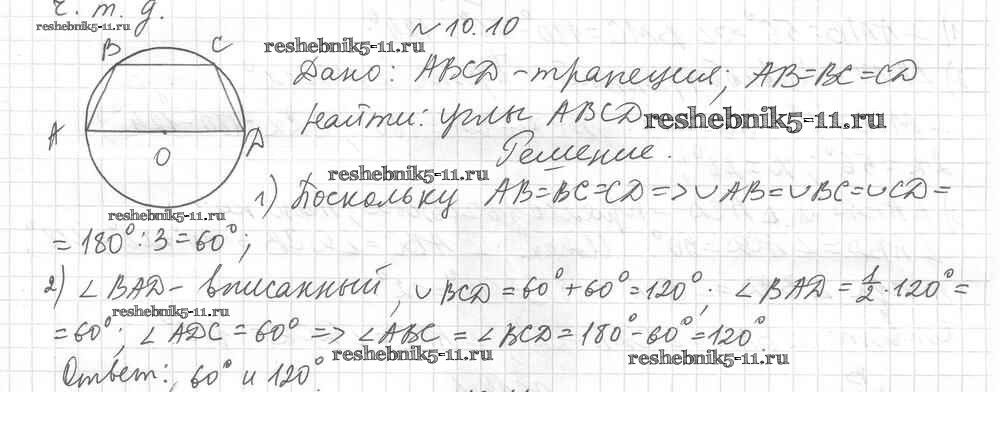 ч. т. д.
reshebnik5-11.ru
№ 10.10
B C
reshebnik5-11.ru
Дано: ABCD - трапеция; AB=BC=CD
A D
Найти: углы ABCD
reshebnik5-11.ru
O
Решение.
reshebnik5-11.ru
1) Поскольку AB=BC=CD => ∪AB=∪BC=∪CD=
reshebnik5-11.ru
= 180° : 3 = 60°;
2) ∠BAD - вписанный, ∪BCD = 60° + 60° = 120°; ∠BAD = 1/2 · 120° =
reshebnik5-11.ru
= 60°; ∠ADC = 60° => ∠ABC = ∠BCD = 180° - 60° = 120°
reshebnik5-11.ru
reshebnik5-11.ru
Ответ: 60° и 120°.